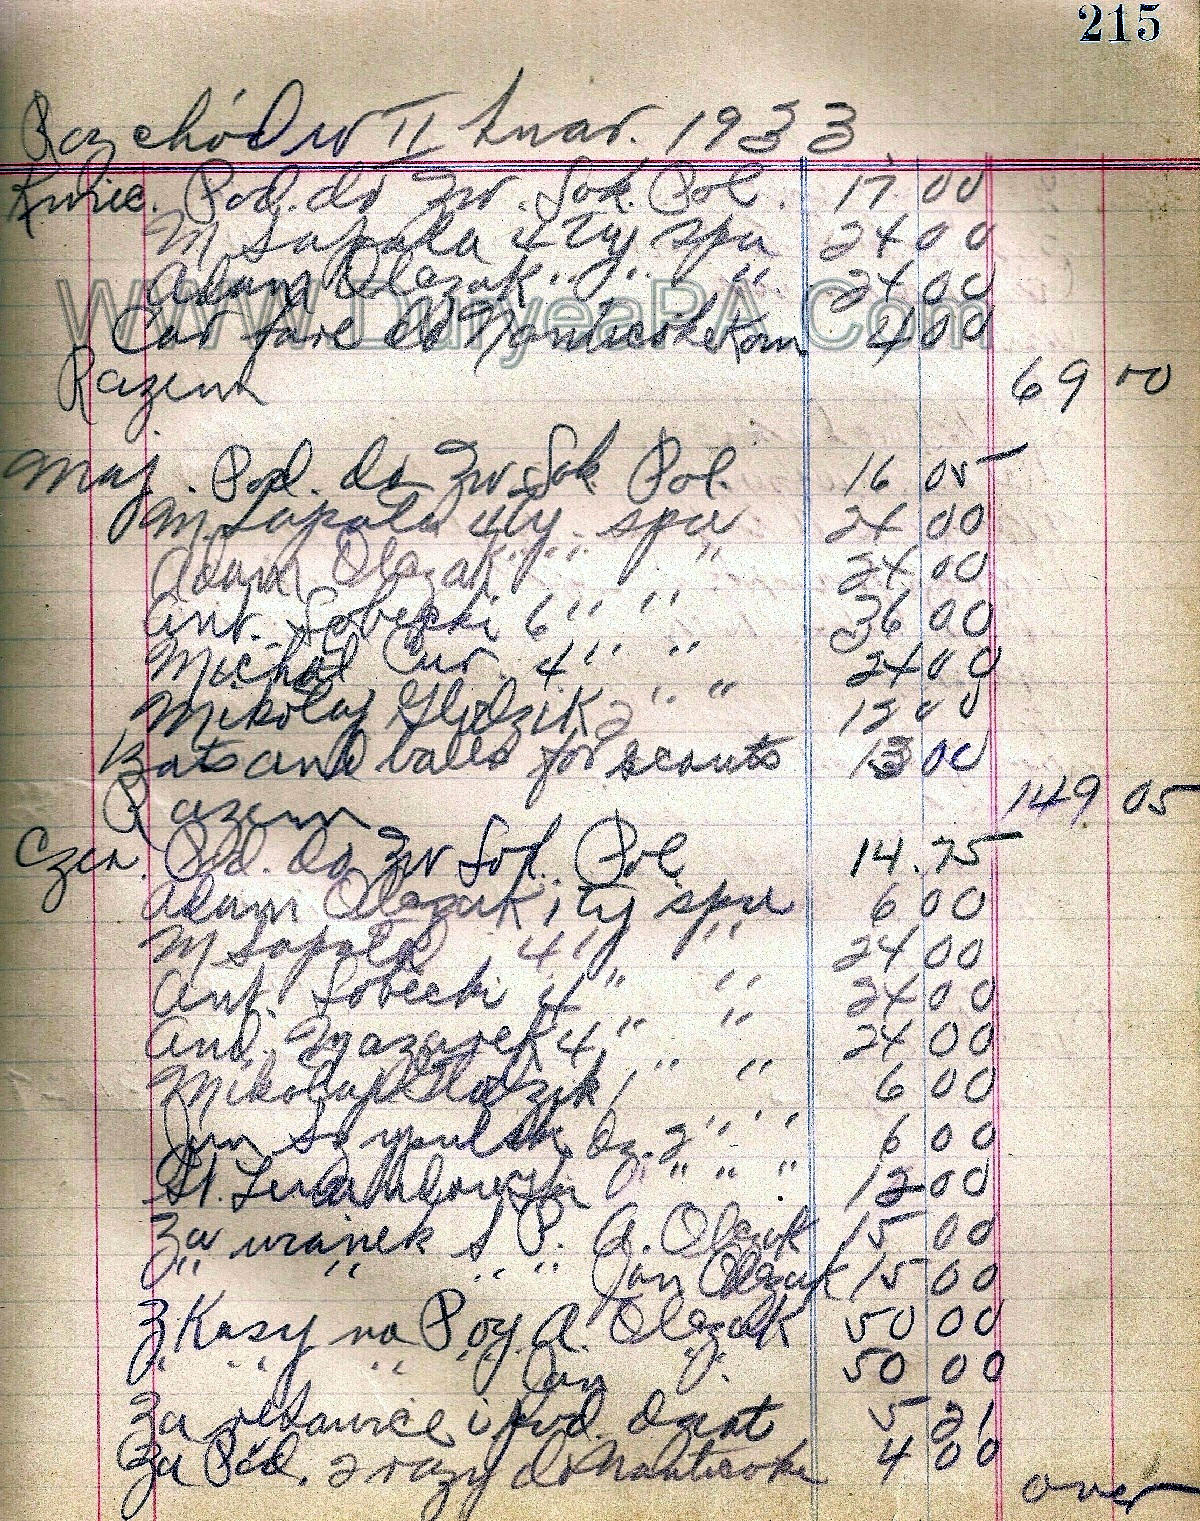 215
Rozchód w II kwar. 1933
Kwiec. Pod. do Zw. Sok. Pol. 17.00
M Sapata 4 ty spa 24 00
Adam Olezak " " " 24 00
Car fare do Nanticoke Kom 4 00
Razem 69 00
WWW.DuryeaPA.Com
Maj. Pod. do Zw. Sok. Pol. 16 05
M. Sapata 4 ty spa 24 00
Adam Olezak " " " 24 00
Ant. Sobecki 6 " " 36 00
Michal Cur. 4 " " 24 00
Mikolaj Glodzik 2 " " 12 00
Bats and balls for scouts 13 00
Razem 149 05
Czer. Pod. do Zw Sok. Pol. 14.75
Adam Olezak 1 ty spa 6 00
M Sapata 4 ty " 24 00
Ant. Sobecki 4 " " 24 00
And. Mazurek 4 " " 24 00
Mikolaj Glodzik 1 " " 6 00
Jun 2 " " 6 00
St. " " " 12 00
Za wianek s P. A. Olezak 15 00
" " " " Jan Olezak 15 00
Z Kasy na Pog. A. Olezak 50 00
" " " " Jan " 50 00
Za i pod. 5 21
Za Pod. 2 razy do Nanticoke 4 00
over